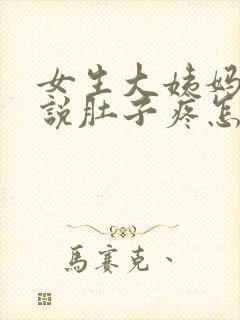 女生大姨妈
說肚子疼怎
馬賽克、